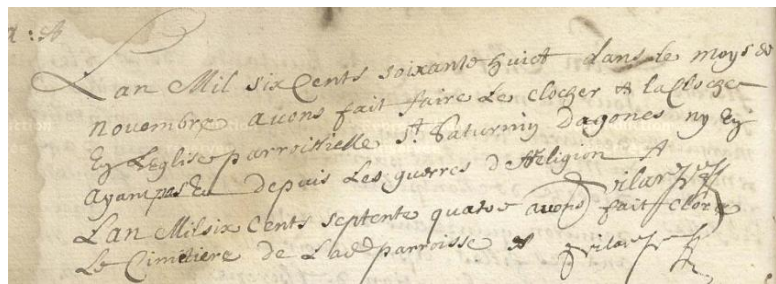 Lan Mil six Cents soixante huict dans le moys de
novembre avons fait faire Le clocher & la Cloche
En Leglise parroissielle St. Saturnin Dagones ny En
ayant pas Eu depuis Les guerres de Religion
Lan Mil six Cents septente quatre avons fait Clorre
Le Cimetiere de Lad parroisse